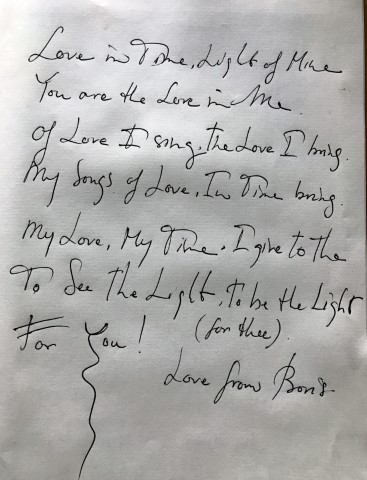 Love in Time, Light of Mine
You are the Love in Me.
Of Love I sing, the Love I bring.
My Songs of Love, In Time bring.
My Love, My Time. I give to the
To See the Light, to be the Light
For You! (for thee).
Love from Boris